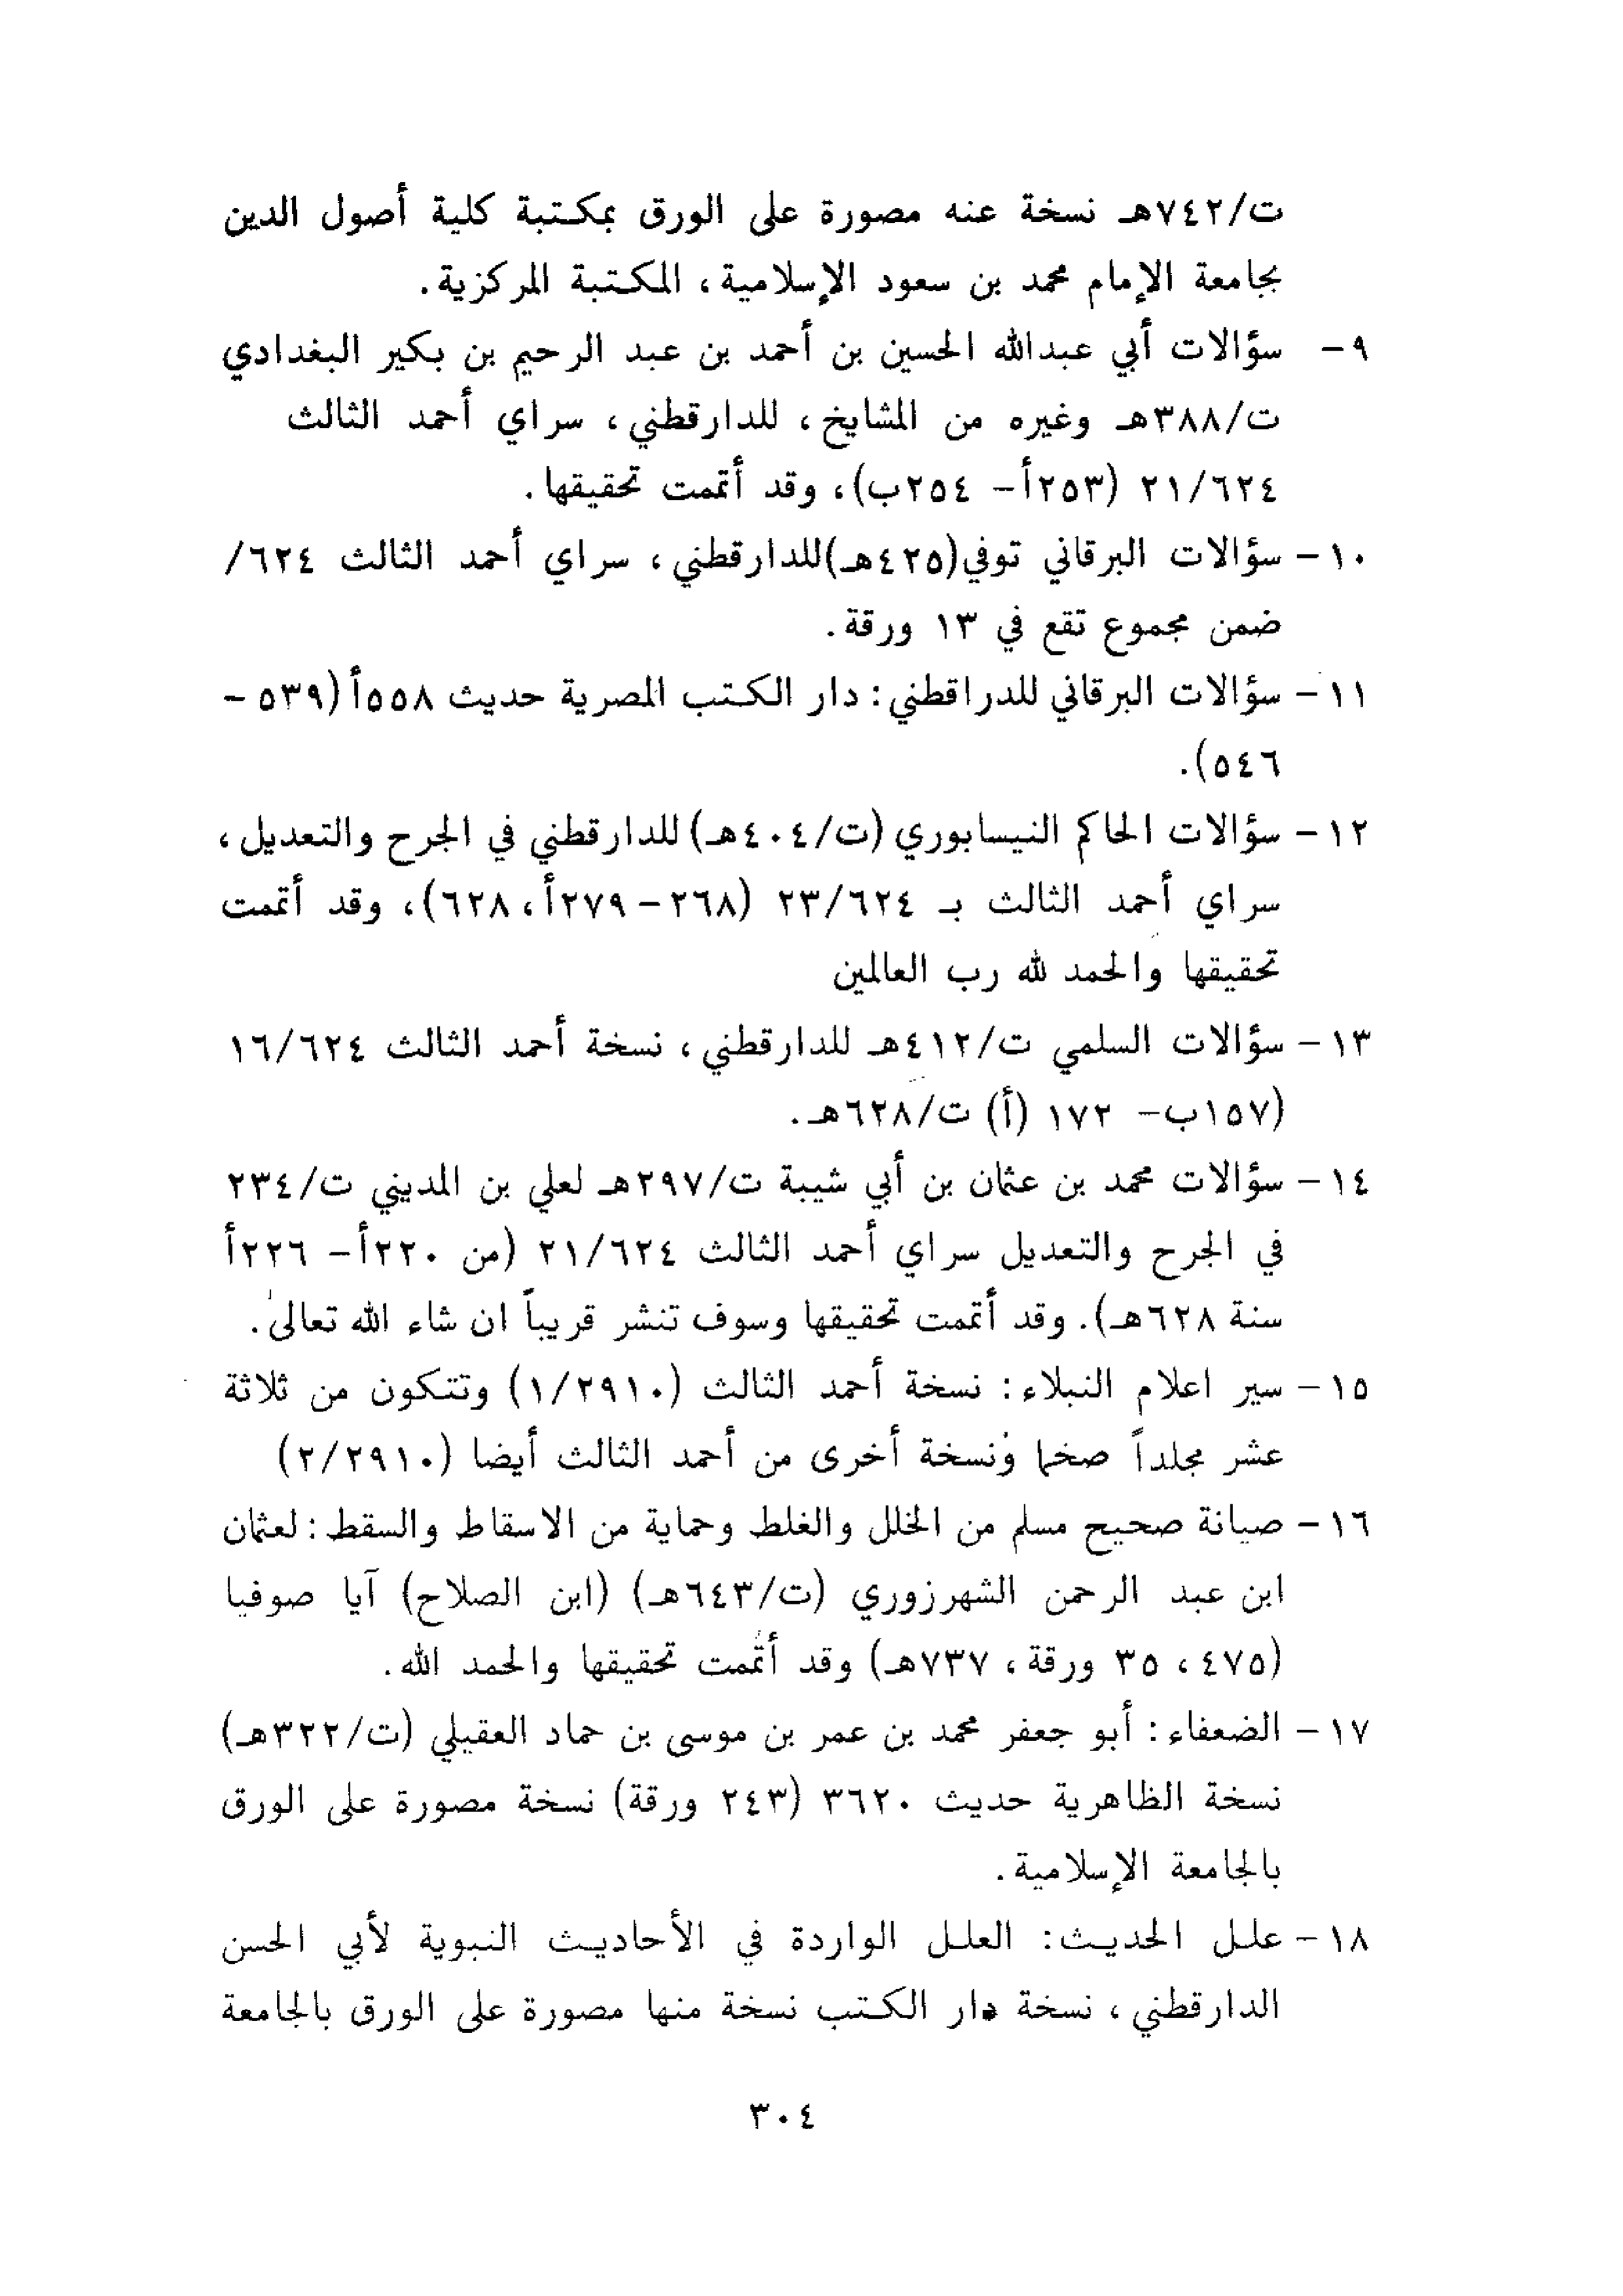 ت/٧٤٢هـ نسخة عنه مصورة على الورق بمكتبة كلية أصول الدين
بجامعة الإمام محمد بن سعود الإسلامية، المكتبة المركزية.
٩- سؤالات أبي عبدالله الحسين بن أحمد بن عبد الرحيم بن بكير البغدادي
ت/٣٨٨هـ وغيره من المشايخ، للدارقطني، سراي أحمد الثالث
٢١/٦٢٤ (٢٥٣أ- ٢٥٤ب)، وقد أتممت تحقيقها.
١٠- سؤالات البرقاني توفي(٤٢٥هـ)للدارقطني، سراي أحمد الثالث ٦٢٤/
ضمن مجموع تقع في ١٣ ورقة.
١١- سؤالات البرقاني للدراقطني: دار الكتب المصرية حديث ٥٥٨أ (٥٣٩-
٥٤٦).
١٢- سؤالات الحاكم النيسابوري (ت/٤٠٤هـ) للدارقطني في الجرح والتعديل،
سراي أحمد الثالث بـ ٢٣/٦٢٤ (٢٦٨-٢٧٩أ، ٦٢٨)، وقد أتممت
تحقيقها والحمد لله رب العالمين
١٣- سؤالات السلمي ت/٤١٢هـ للدارقطني، نسخة أحمد الثالث ١٦/٦٢٤
(١٥٧ب- ١٧٢ (أ) ت/٦٢٨هـ.
١٤- سؤالات محمد بن عثمان بن أبي شيبة ت/٢٩٧هـ لعلي بن المديني ت/٢٣٤
في الجرح والتعديل سراي أحمد الثالث ٢١/٦٢٤ (من ٢٢٠أ- ٢٢٦أ
سنة ٦٢٨هـ). وقد أتممت تحقيقها وسوف تنشر قريباً ان شاء الله تعالى.
١٥- سير اعلام النبلاء: نسخة أحمد الثالث (١/٢٩١٠) وتتكون من ثلاثة
عشر مجلداً صخما ونسخة أخرى من أحمد الثالث أيضا (٢/٢٩١٠)
١٦- صيانة صحيح مسلم من الخلل والغلط وحماية من الاسقاط والسقط: لعثمان
ابن عبد الرحمن الشهرزوري (ت/٦٤٣هـ) (ابن الصلاح) آيا صوفيا
(٤٧٥، ٣٥ ورقة، ٧٣٧هـ) وقد أتممت تحقيقها والحمد الله.
١٧- الضعفاء: أبو جعفر محمد بن عمر بن موسى بن حماد العقيلي (ت/٣٢٢هـ)
نسخة الظاهرية حديث ٣٦٢٠ (٢٤٣ ورقة) نسخة مصورة على الورق
بالجامعة الإسلامية.
١٨- علل الحديث: العلل الواردة في الأحاديث النبوية لأبي الحسن
الدارقطني، نسخة دار الكتب نسخة منها مصورة على الورق بالجامعة
٣٠٤